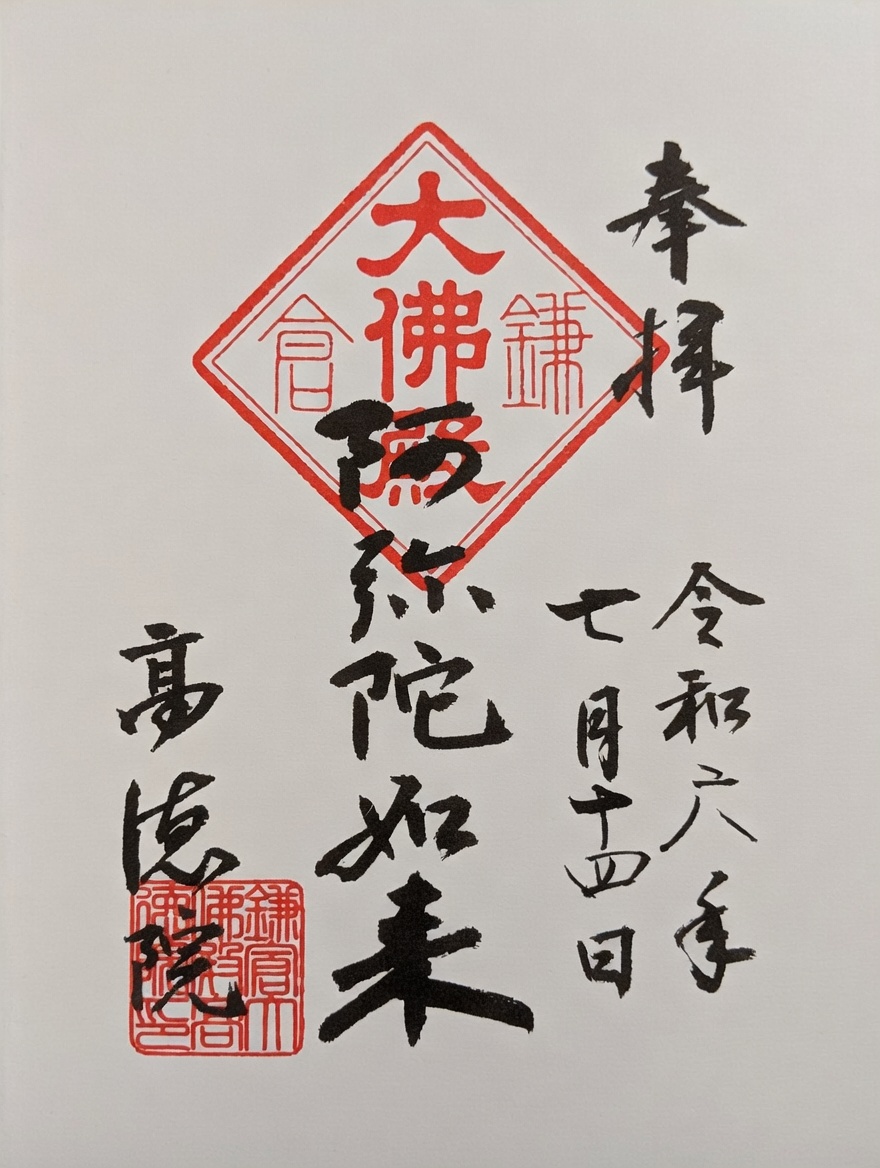 奉拝
令和六年
七月十四日
鎌倉
大佛殿
阿弥陀如来
高徳院
鎌倉大
佛殿高
徳院印